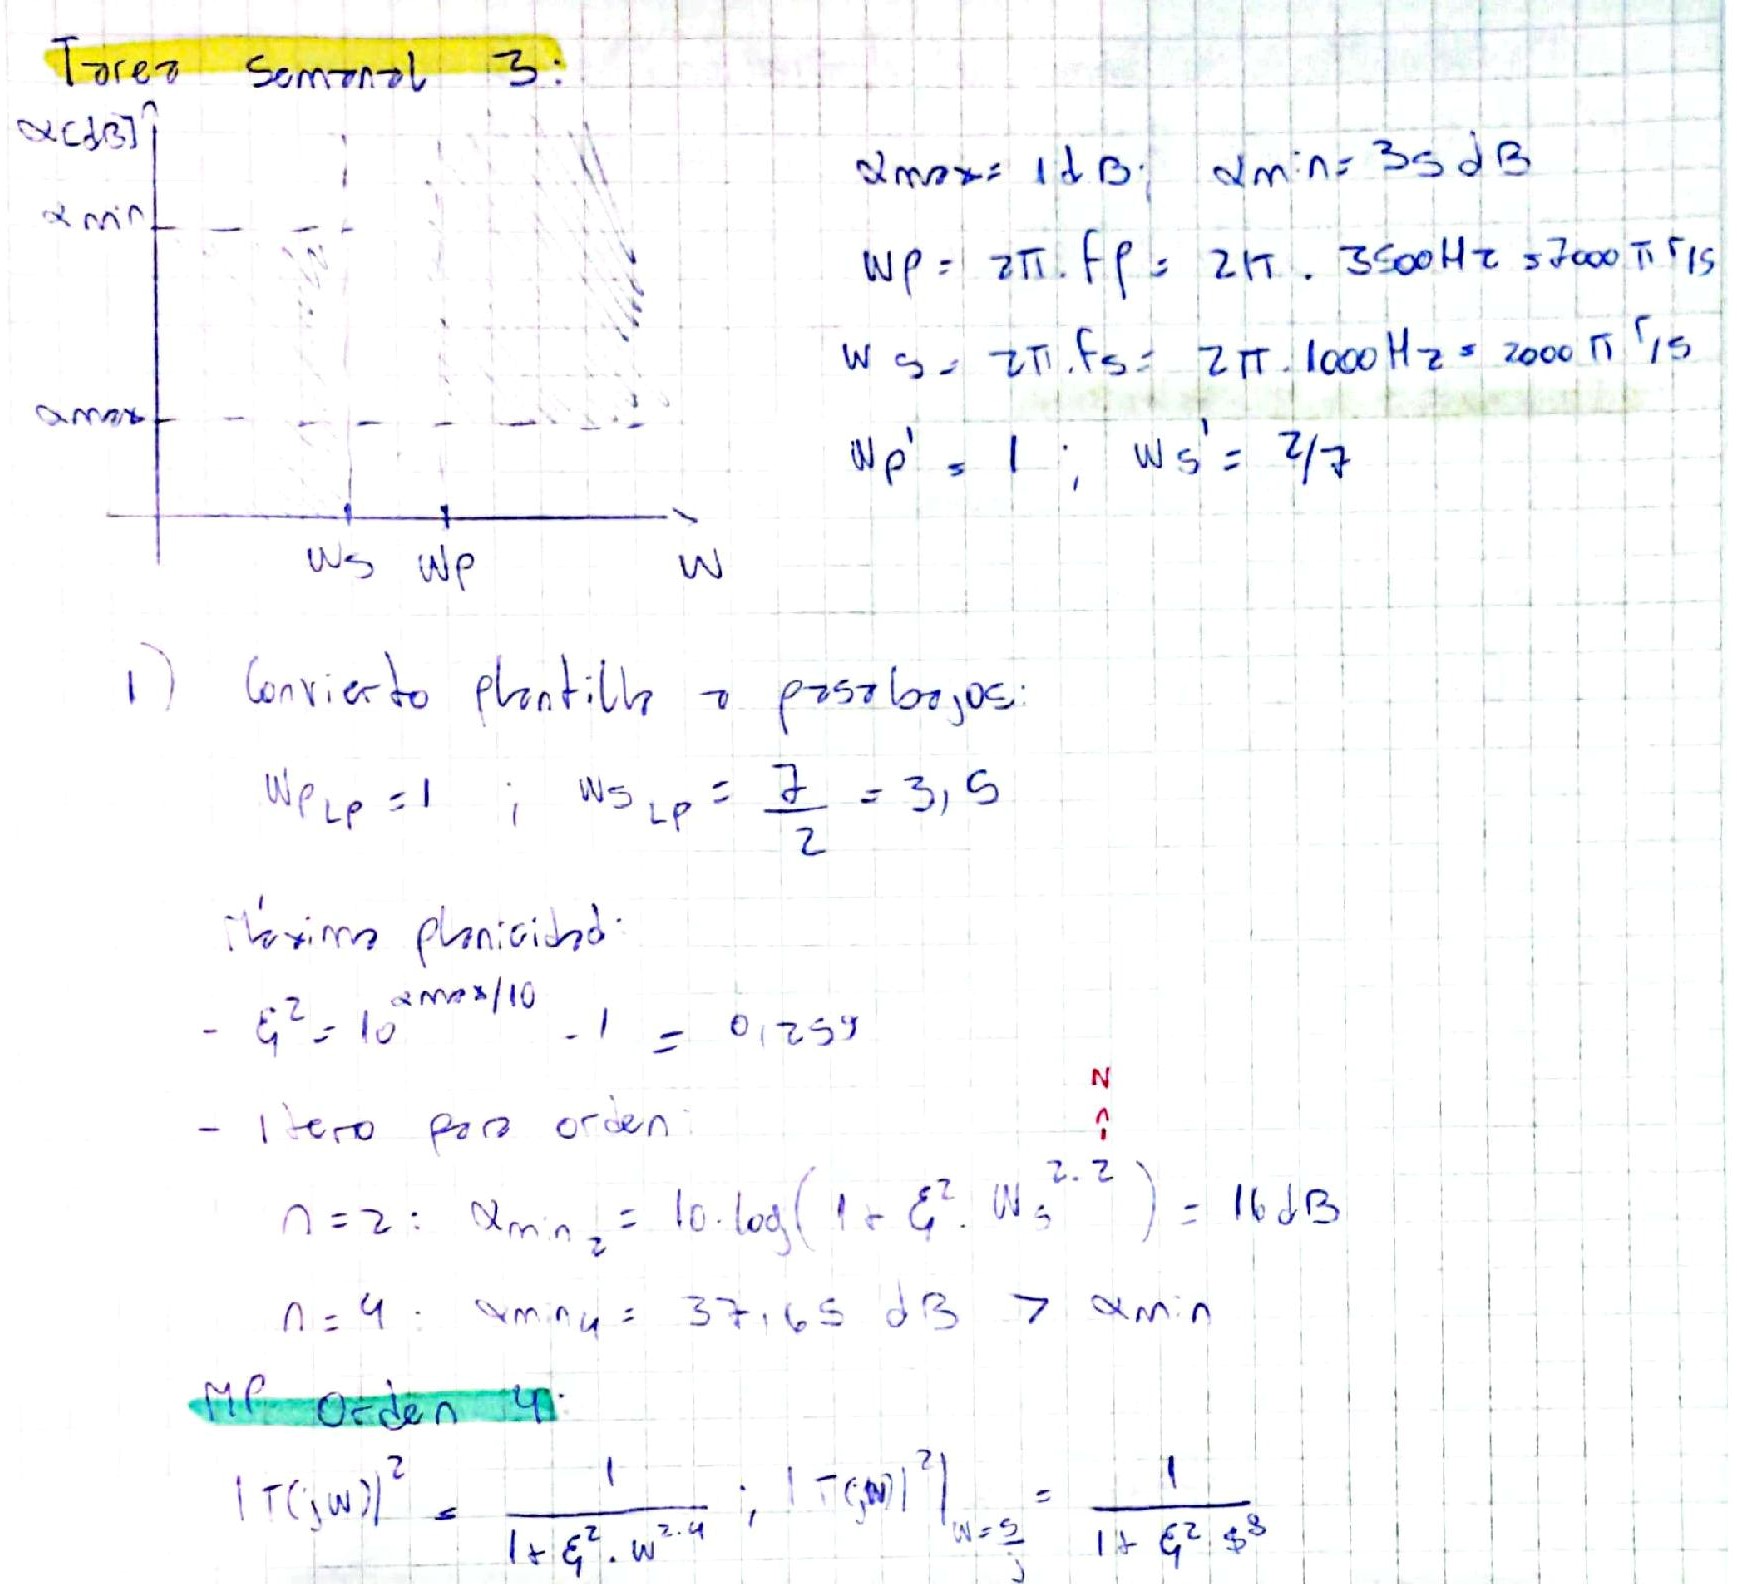 Tarea Semanal 3:
α[dB]
αmin
αmax
Ws Wp W
αmax = 1dB; αmin = 35dB
Wp = 2π.fp = 2π . 3500Hz = 7000π r/s
Ws = 2π.fs = 2π . 1000Hz = 2000π r/s
Wp' = 1 ; Ws' = 2/7
1) Convierto plantilla a pasabajos:
Wp LP = 1 ; Ws LP = 7/2 = 3,5
Máxima planicidad:
- ξ² = 10^(αmax/10) - 1 = 0,259
- Itero para orden:
N
n=2: αmin₂ = 10.log(1 + ξ². Ws^(2.2)) = 16dB
n=4: αmin₄ = 37,65 dB > αmin
MP Orden 4:
|T(jw)|² = 1/(1+ξ².w^(2.4)) ; |T(jw)|²|w=s/j = 1/(1+ξ² s⁸)